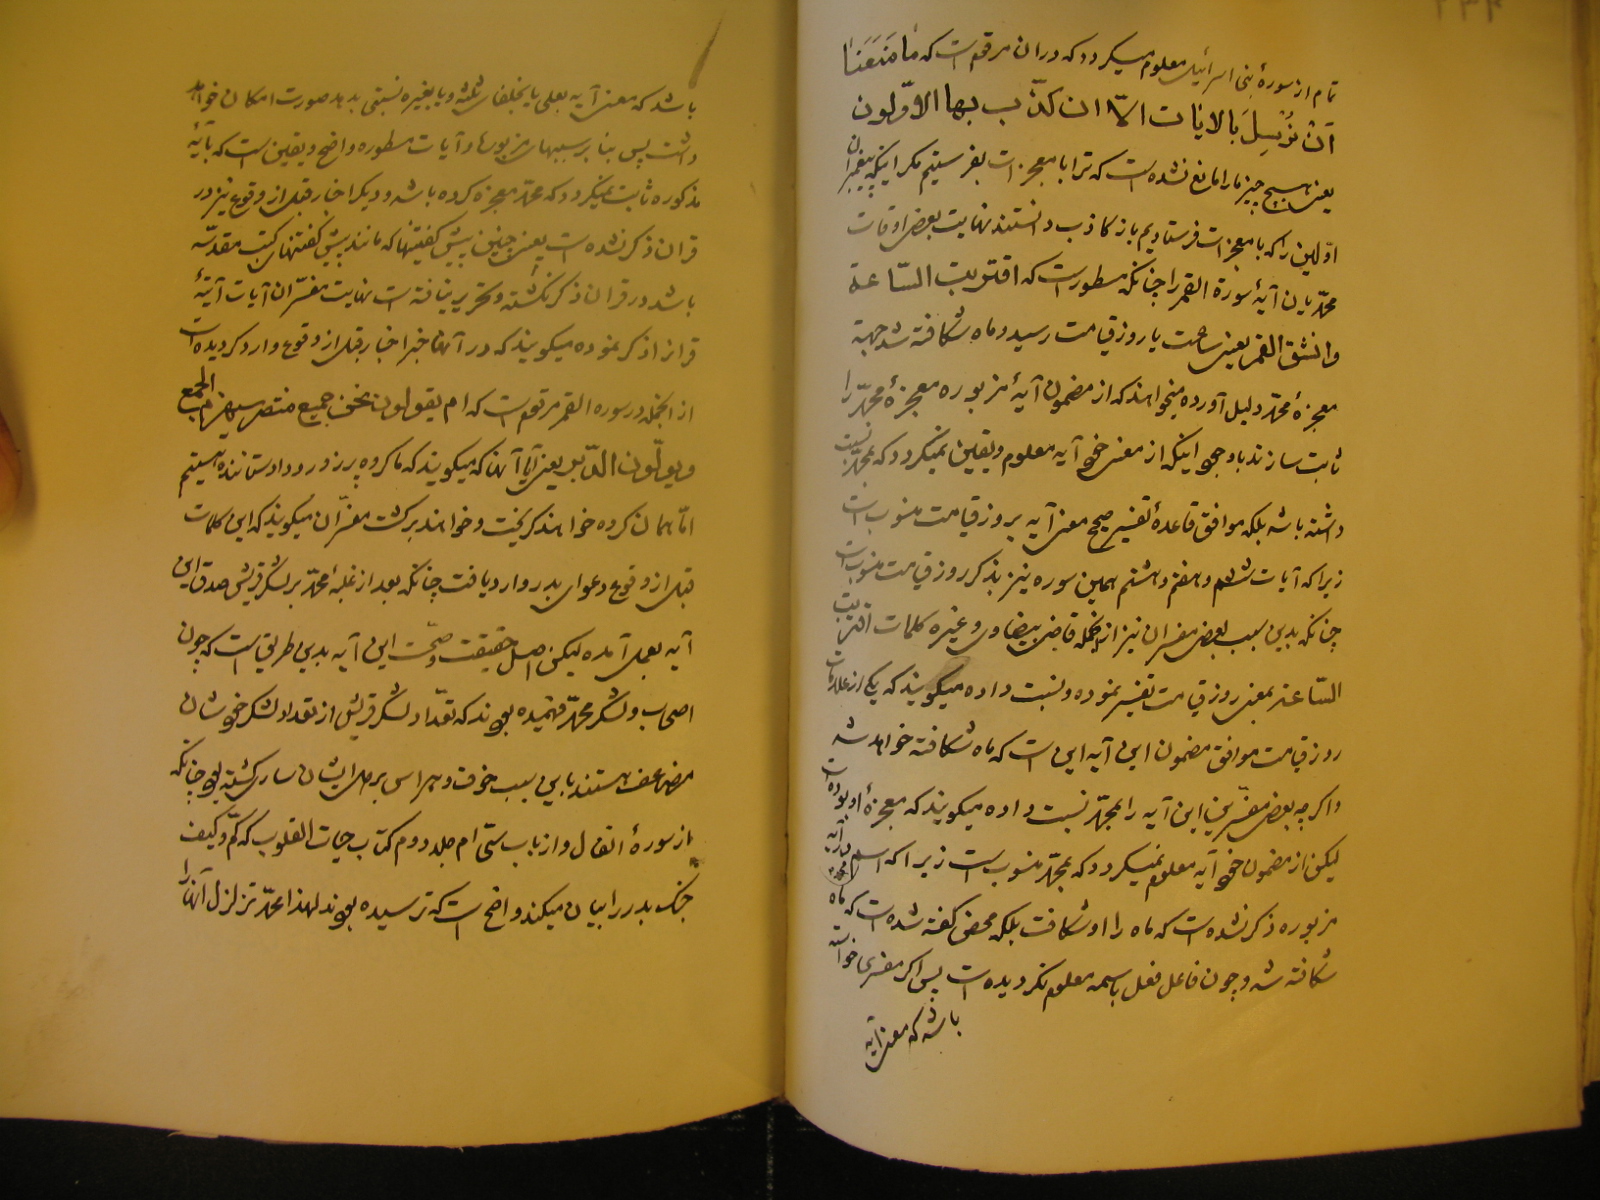 ۲۳۴
تمام از سورهٔ بنی اسرائیل معلوم میگردد که در ان مرقم است که مَا مَنَعَنَا
اَنْ نُرْسِلَ بالایات الّا ان کذّب بها الاوّلون
یعنی هیچ چیز ما را مانع نشده است که ترا با معجزات بفرستیم مکر اینکه پیغمبران
اوّلین را که با معجزات فرستادیم باز کاذب دانستند نهایت بعض اوقات
محمّدیان آیهٔ سورة القمر را چنانکه مسطور است که اقتربت السّاعة
وانشق القمر یعنی ساعت یا روز قیامت رسید و ماه شکافته شد جهة
معجزهٔ محمّد دلیل آورده میخواهند که از مضمون آیهٔ مزبوره معجزهٔ محمّد را
ثابت سازند باوجود اینکه از معنی خود آیه معلوم و یقین نمیکردد که بمحمّد نسبت
داشته باشد بلکه موافق قاعدهٔ تفسیر صحیح معنی آیه بروز قیامت منسوب است
زیرا که آیات ششم و هفتم و هشتم همین سوره نیز بذکر روز قیامت منسوب است
چنانکه بدین سبب بعض مفسران نیز از انجمله قاضی بیضاوی و غیره کلمات اقتربت
السّاعة بمعنی روز قیامت تفسیر نموده و نسبت داده میکویند که یکی از علامات
روز قیامت موافق مضمون این آیه این است که ماه شکافته خواهد شد
و اکرچه بعض مفسّرین این آیه را بمحمّد نسبت داده میکویند که معجزهٔ او بوده است
لیکن از مضمون خود آیه معلوم نمیکردد که بمحمّد منسوب است زیرا که اسم محمّد در آیه
مزبوره ذکر نشده است که ماه را او شکافت بلکه محض کفته شده است که ماه
شکافته شد و چون فاعل فعل باسمه معلوم نکردیده است پس اکر مفسری خواسته
باشد که معنی آیه
باشد که معنی آیه بعلی یا بخلفای ثلثه و یا بغیره نسبتی بدهد صورت امکان خواهد
داشت پس بنا بر سببهای مزبوره و آیات مسطوره واضح و یقین است که بآیهٔ
مذکوره ثابت نمیکردد که محمّد معجزه کرده باشد و دیکر اخبار قبل از وقوع نیز در
قران ذکر نشده است یعنی چنین پیش کفتنها که مانند پیش کفتنهای کتب مقدّسه
باشد در قران ذکر نکشته و تحریر نیافته است نهایت مفسّران آیات آتیهٔ
قرانرا ذکر نموده میکویند که در آنها خبر اخبار قبل از وقوع وارد کردیده است
از انجمله در سوره القمر مرقوم است که ام یقولون نحن جمیع منتصر سیهزم الجمع
ویولّون الدّبر یعنی آیا آنها که میکویند که ما کروه پرزور و دادستاننده هستیم
امّا همان کروه خواهند کریخت و خواهند برکشت مفسّران میکویند که این کلمات
قبل از وقوع دعوای بدر وارد یافت چنانکه بعد از غلبهٔ محمّد بر لشکر قریش صدق این
آیه بعمل آمده لیکن اصل حقیقت و صحّت این آیه بدین طریق است که چون
اصحاب و لشکر محمّد فهمیده بودند که تعداد لشکر قریش از تعداد لشکر خودشان
مضاعف هستند باین سبب خوف و هراس بر همهٔ ایشان ساری کشته بود چنانکه
از سورهٔ انفال و از باب سی ام جلد دوم کتاب حیات القلوب که کمّ و کیف
جنک بدر را بیان میکند واضح است که ترسیده بودند لهذا محمّد تزلزل آنها را